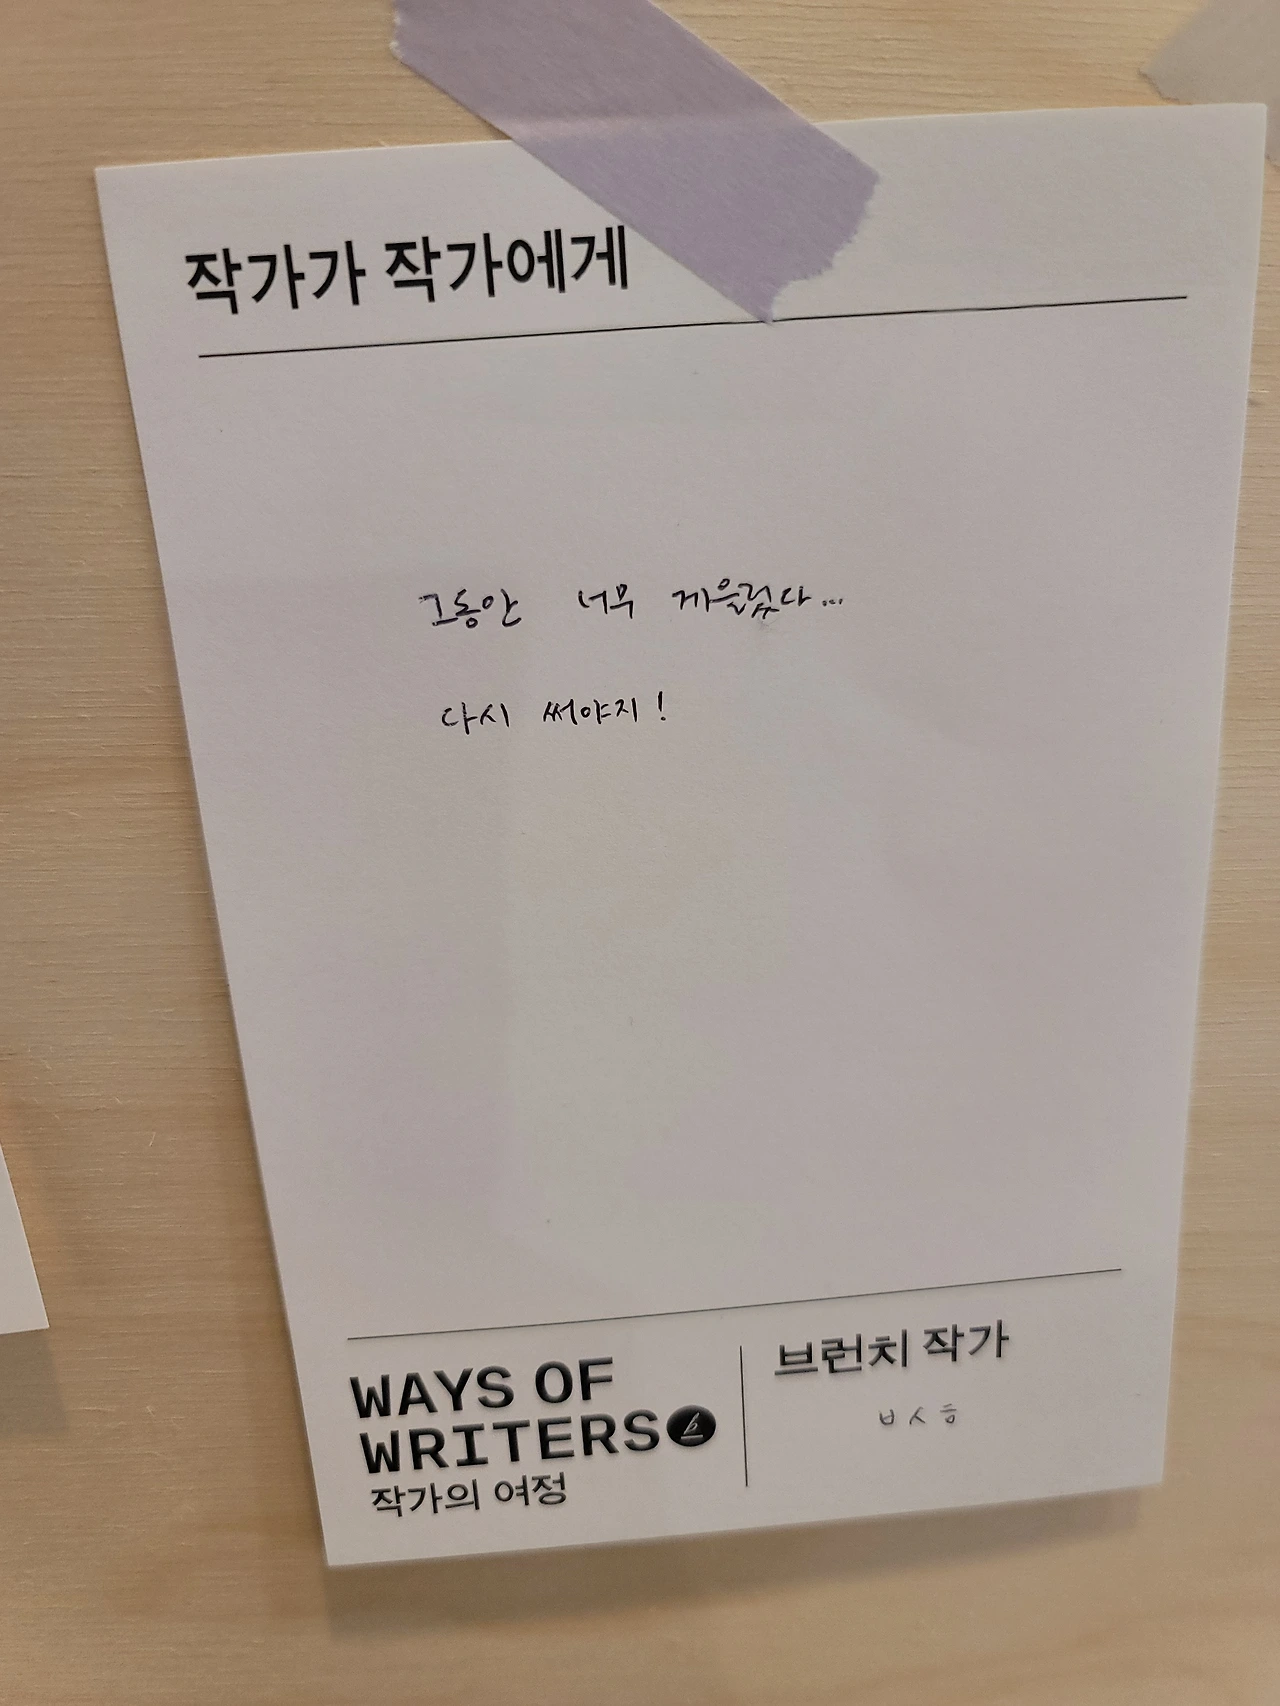 작가가 작가에게
그동안 너무 게을렀다...
다시 써야지!
WAYS OF
WRITERS
작가의 여정
브런치 작가
ㅂㅅㅎ